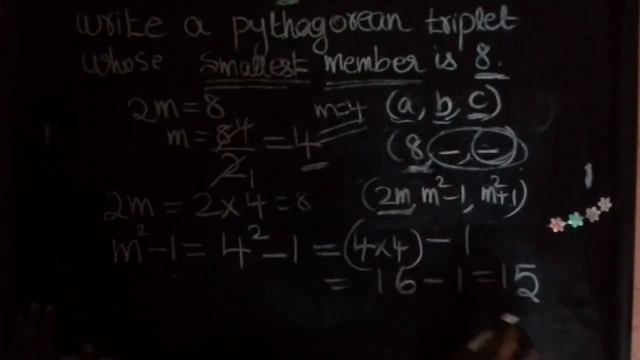 write a pythagorean triplet
whose smallest member is 8.
2m = 8 m=4 (a, b, c)
m = 8 4 / 2 1 = 4 (8, –, –)
2m = 2 × 4 = 8 (2m, m²-1, m²+1)
m²-1 = 4² - 1 = (4×4) - 1
= 16 - 1 = 15